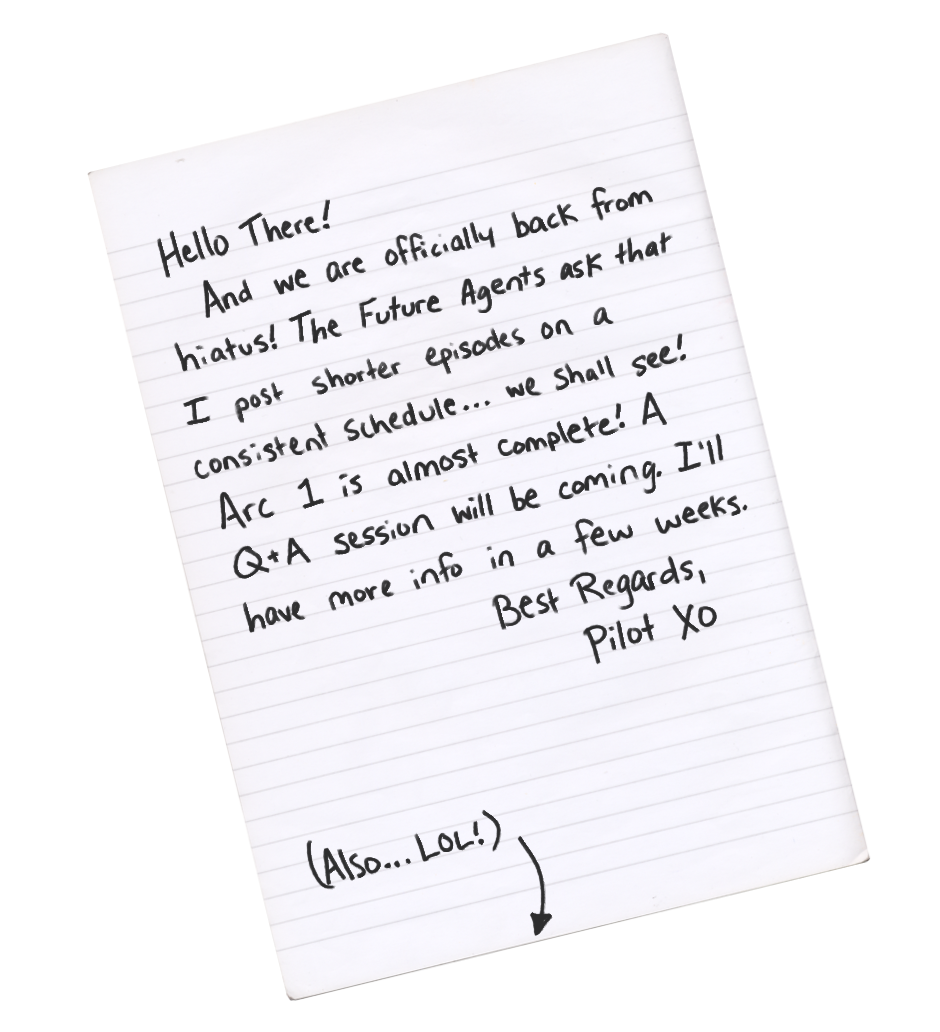 Hello There!
And we are officially back from
hiatus! The Future Agents ask that
I post shorter episodes on a
consistent schedule... we shall see!
Arc 1 is almost complete! A
Q+A session will be coming. I'll
have more info in a few weeks.
Best Regards,
Pilot XO
(Also... LOL!)